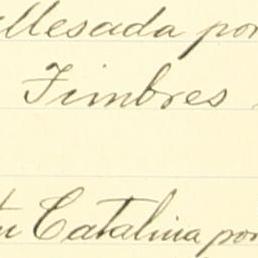 llesada por
Timbres
Catalina por